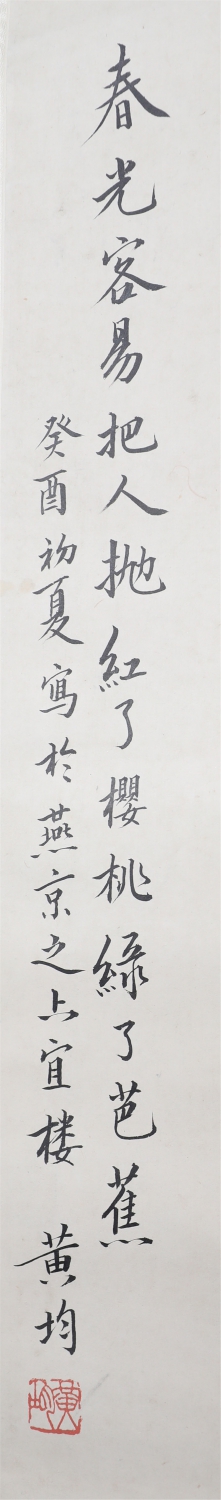 春光容易把人抛紅了櫻桃緑了芭蕉
癸酉初夏寫於燕京之上宜楼 黄均
黄均